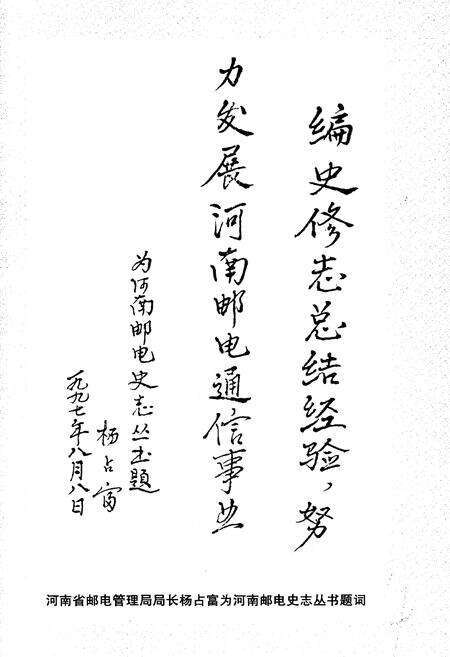 编史修志总结经验,努
力发展河南邮电通信事业
为河南邮电史志丛书题
杨占富
一九九七年八月八日
河南省邮电管理局局长杨占富为河南邮电史志丛书题词